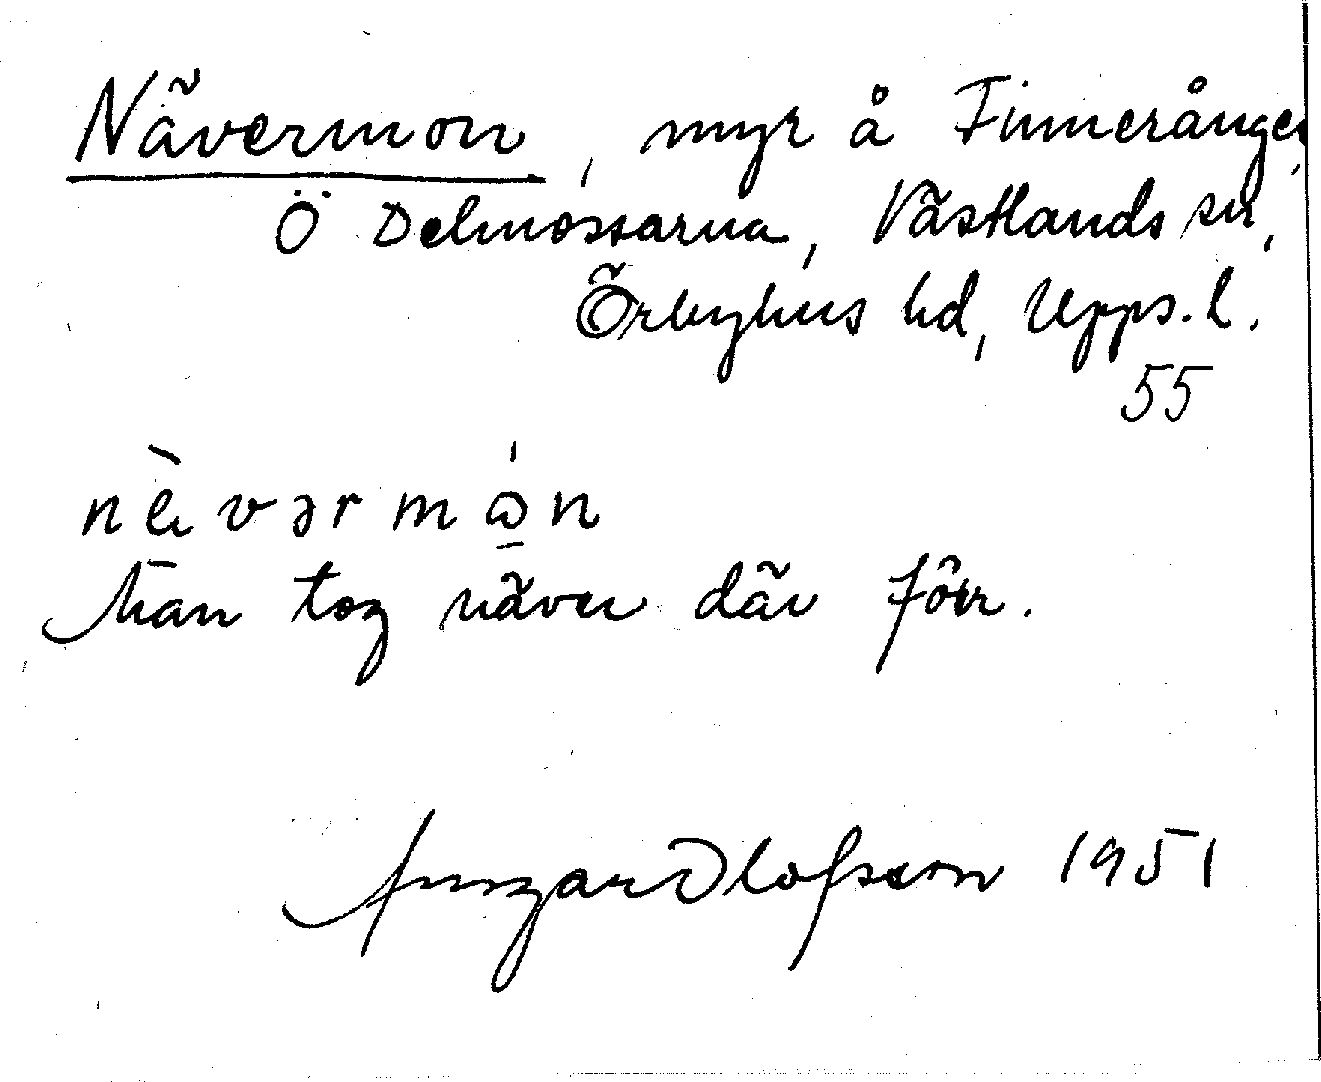 Nävermon, myr å Finnerånger,
Ö Delmossarna, Västlands sn,
Örbyhus hd, Upps. l.
55
nè̀vərmɷ́n
Man tog näver där förr.
Ansgar Olofsson 1951